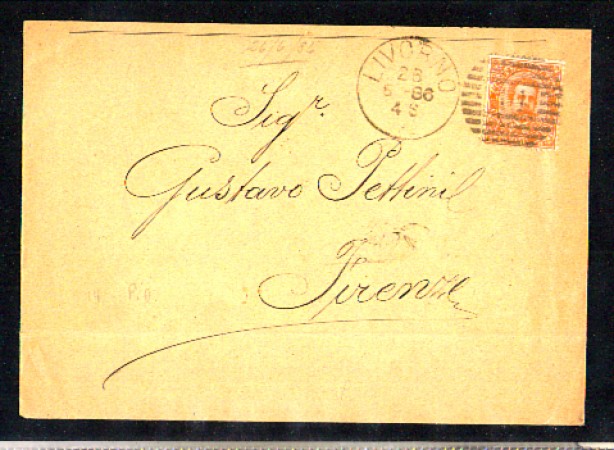 26/6/86
LIVORNO
26
6-86
4 S
Sigr.
Gustavo Pettini
Firenze